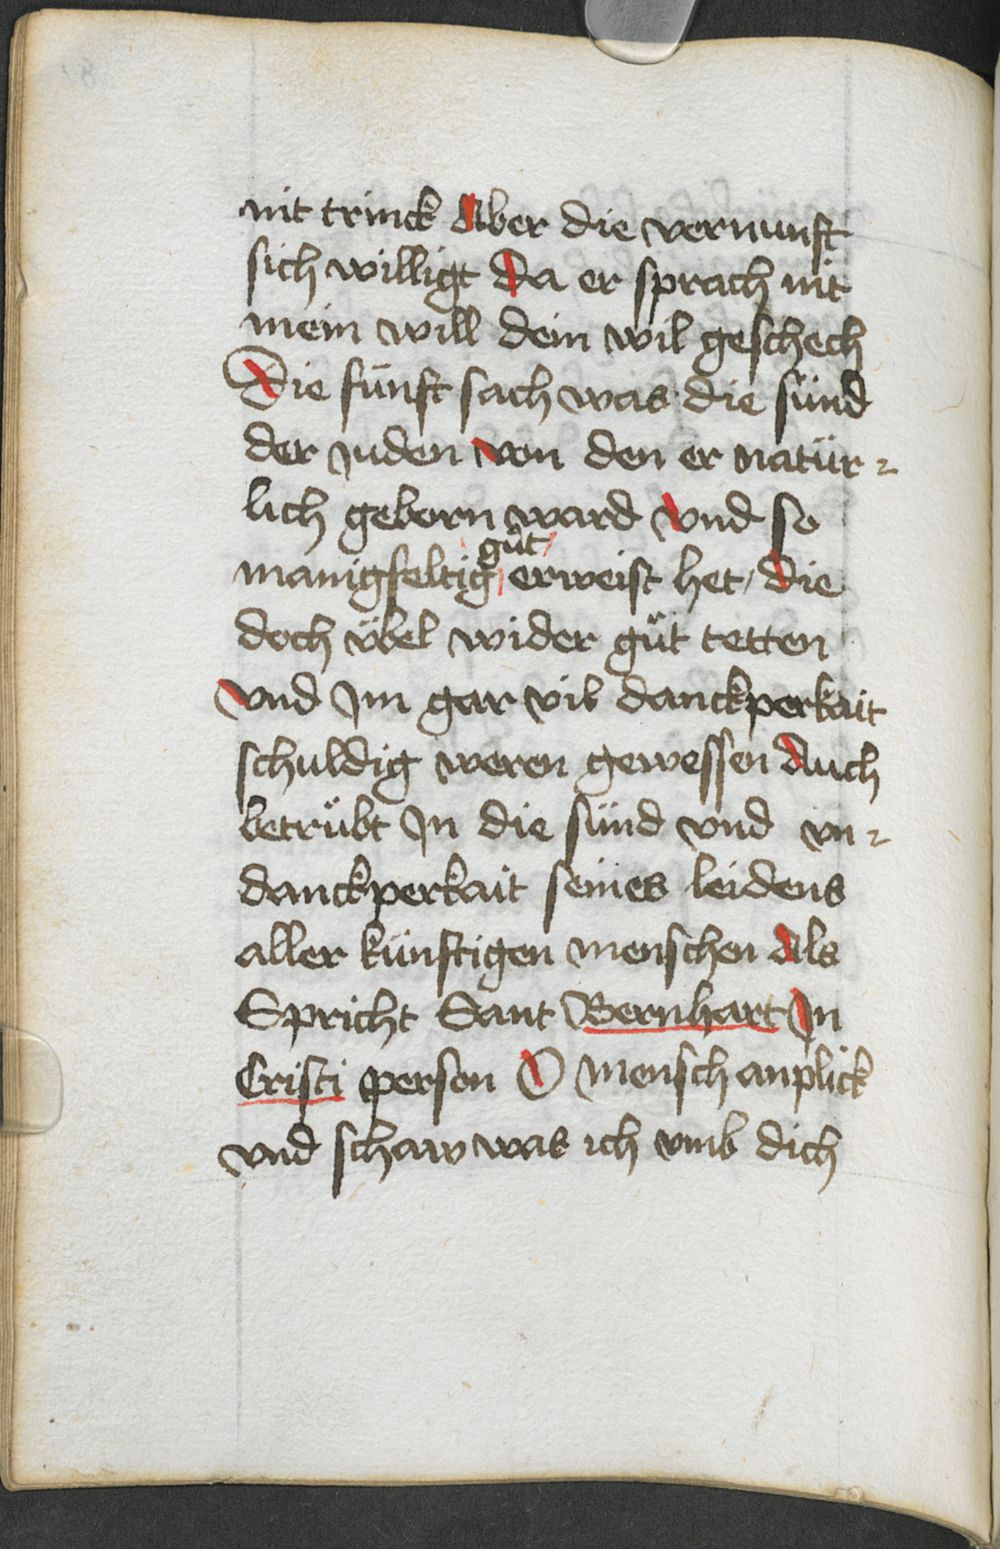 nit trinck Aber die vernunft
sich willigt Da er sprach nit
mein will dein wil geschech
Die fünft sach was die sünd
der Juden von den er natür-
lich geborn ward Vnd so
güt
manigfeltig erweist het / Die
doch übel wider güt tetten
Vnd Jm gar vil danckperkait
schuldig weren gewessen Auch
betrübt Jn die sünd vnd vn-
danckperkait seines leidens
aller künftigen menschen Als
Spricht Sant Bernhart Jn
Cristi person O mensch anplick
vnd schaw was ich vmb dich